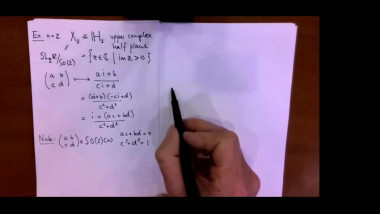 Ex n=2 X₂ ≅ ℍ₂ upper complex half plane
SL₂ℝ/SO(2) = {z∈ℂ | Im z > 0}
(a b
c d) ⟼ ai+b / ci+d
= (ai+b)(-ci+d) / c²+d²
= i + (ac+bd) / c²+d²
Note: (a b
c d) ∈ SO(2) ⟺ ac+bd=0
c²+d²=1